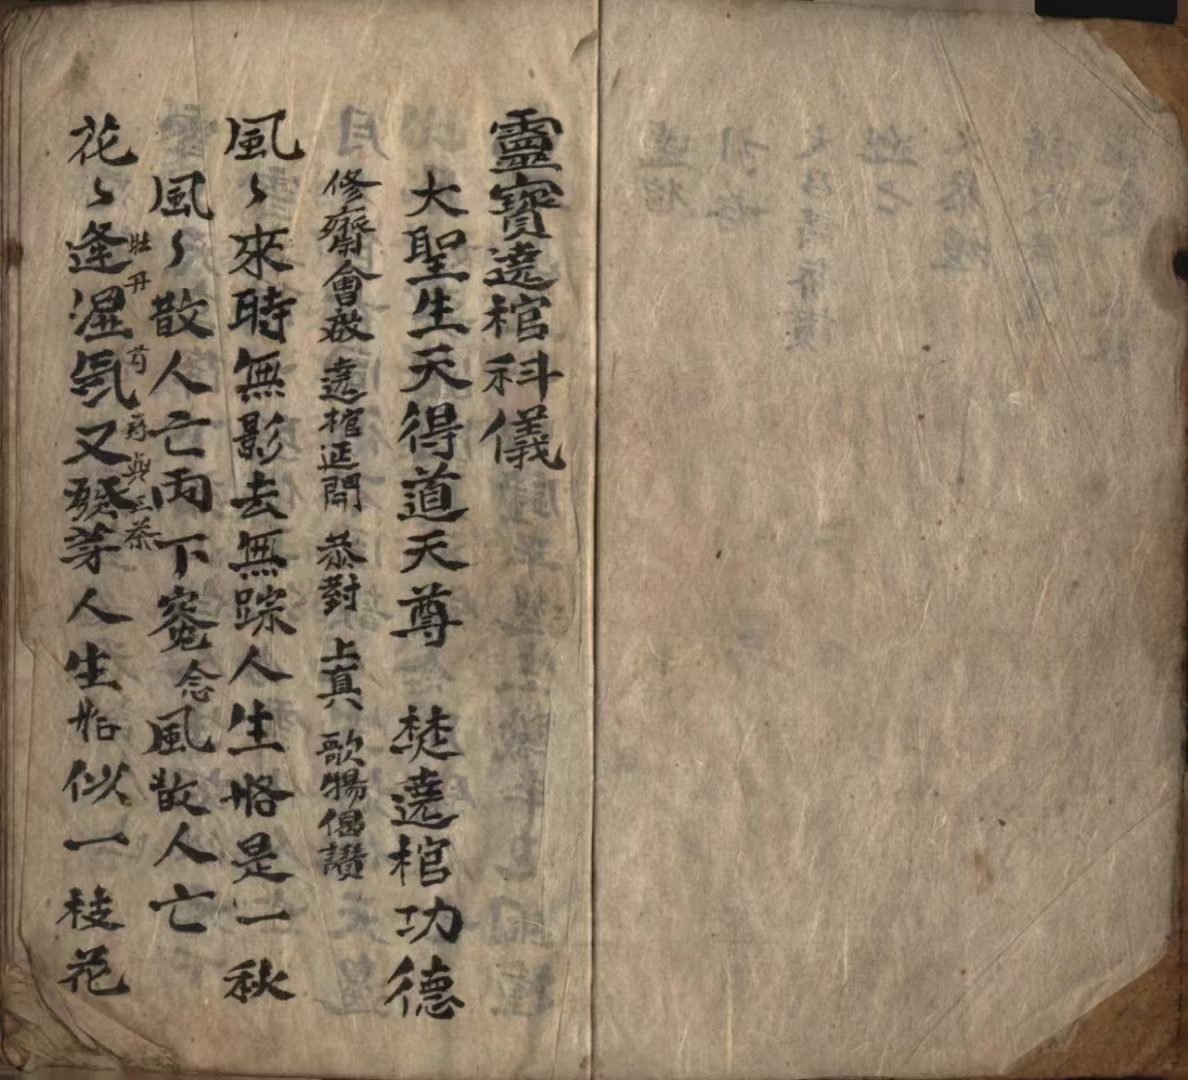 靈寶遶棺科儀
大聖生天得道天尊 焚遶棺功德
修齋會啟 遶棺延開 恭對 上真 歌揚偈讚
風〻來時無影去無踪人生恰是一秋
風〻散人亡両下冤念風散人亡
牡丹 芍 葯與三茶
花〻逢濕氣又發芽人生恰似一枝花